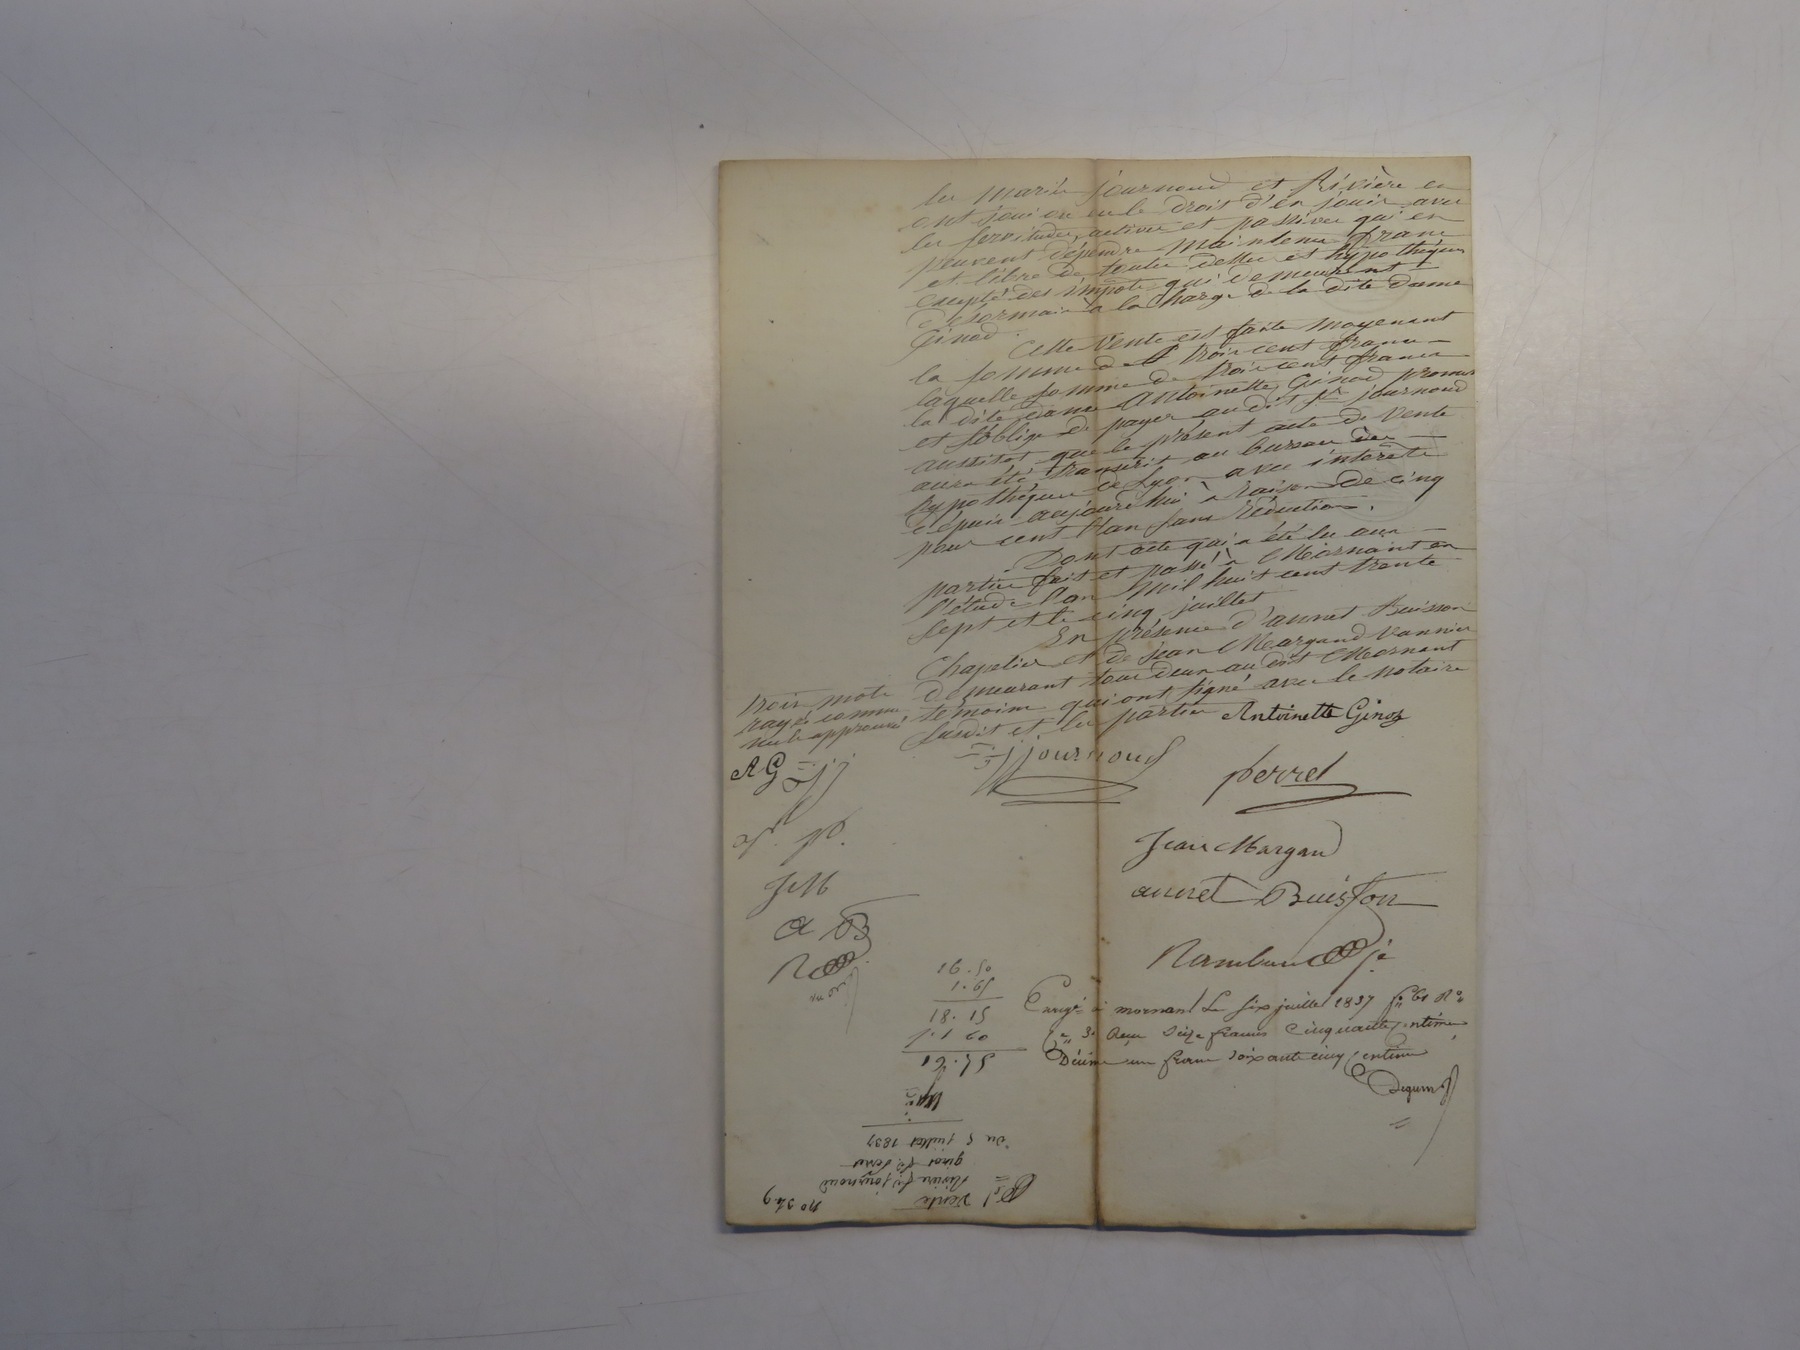 les mariés journoud et Rivière en
ont joui ou eu le droit d'en jouir avec
les servitudes actives et passives qui en
peuvent dépendre Maintenue franc
et libre de toutes dettes et hypothèques
excepté des impots qui demeurent
désormais à la charge de la dite dame
Ginod.
Cette Vente est faite Moyenant
la somme de trois cent francs
laquelle somme de trois cent francs
la dite dame Antoinette Ginod promet
et s'oblige de payer au dit sr journoud
aussitot que le présent acte de Vente
aura été transcrit au bureau des
hypothèques de Lyon avec intérets
depuis aujourd'hui à raison de cinq
pour cent l'an sans réduction.
Dont acte qui a été lu aux
parties fait et passé à Mornant en
l'étude l'an Mil huit cent trente
sept et le cinq juillet
En présence d'annet Buisson
Chapelier et de jean Margand Vannier
demeurant tous deux au dit Mornant
témoins qui ont signé avec le Notaire
susdit et les parties Antoinette Ginoz
trois mots
rayés comme
nuls approuvé
AG jj
j journoud
perret
Jean Margand
JM
annet Buisson
A B
Enregé à mornant Le six juillet 1837 fo 61 Ro
Reçu Seize francs Cinquante centimes
Décime un franc soixante cinq centimes
16.50
1.65
18.15
No 349
Vente
Rivière fe journoud
ginot fe Perret
du 5 juillet 1837